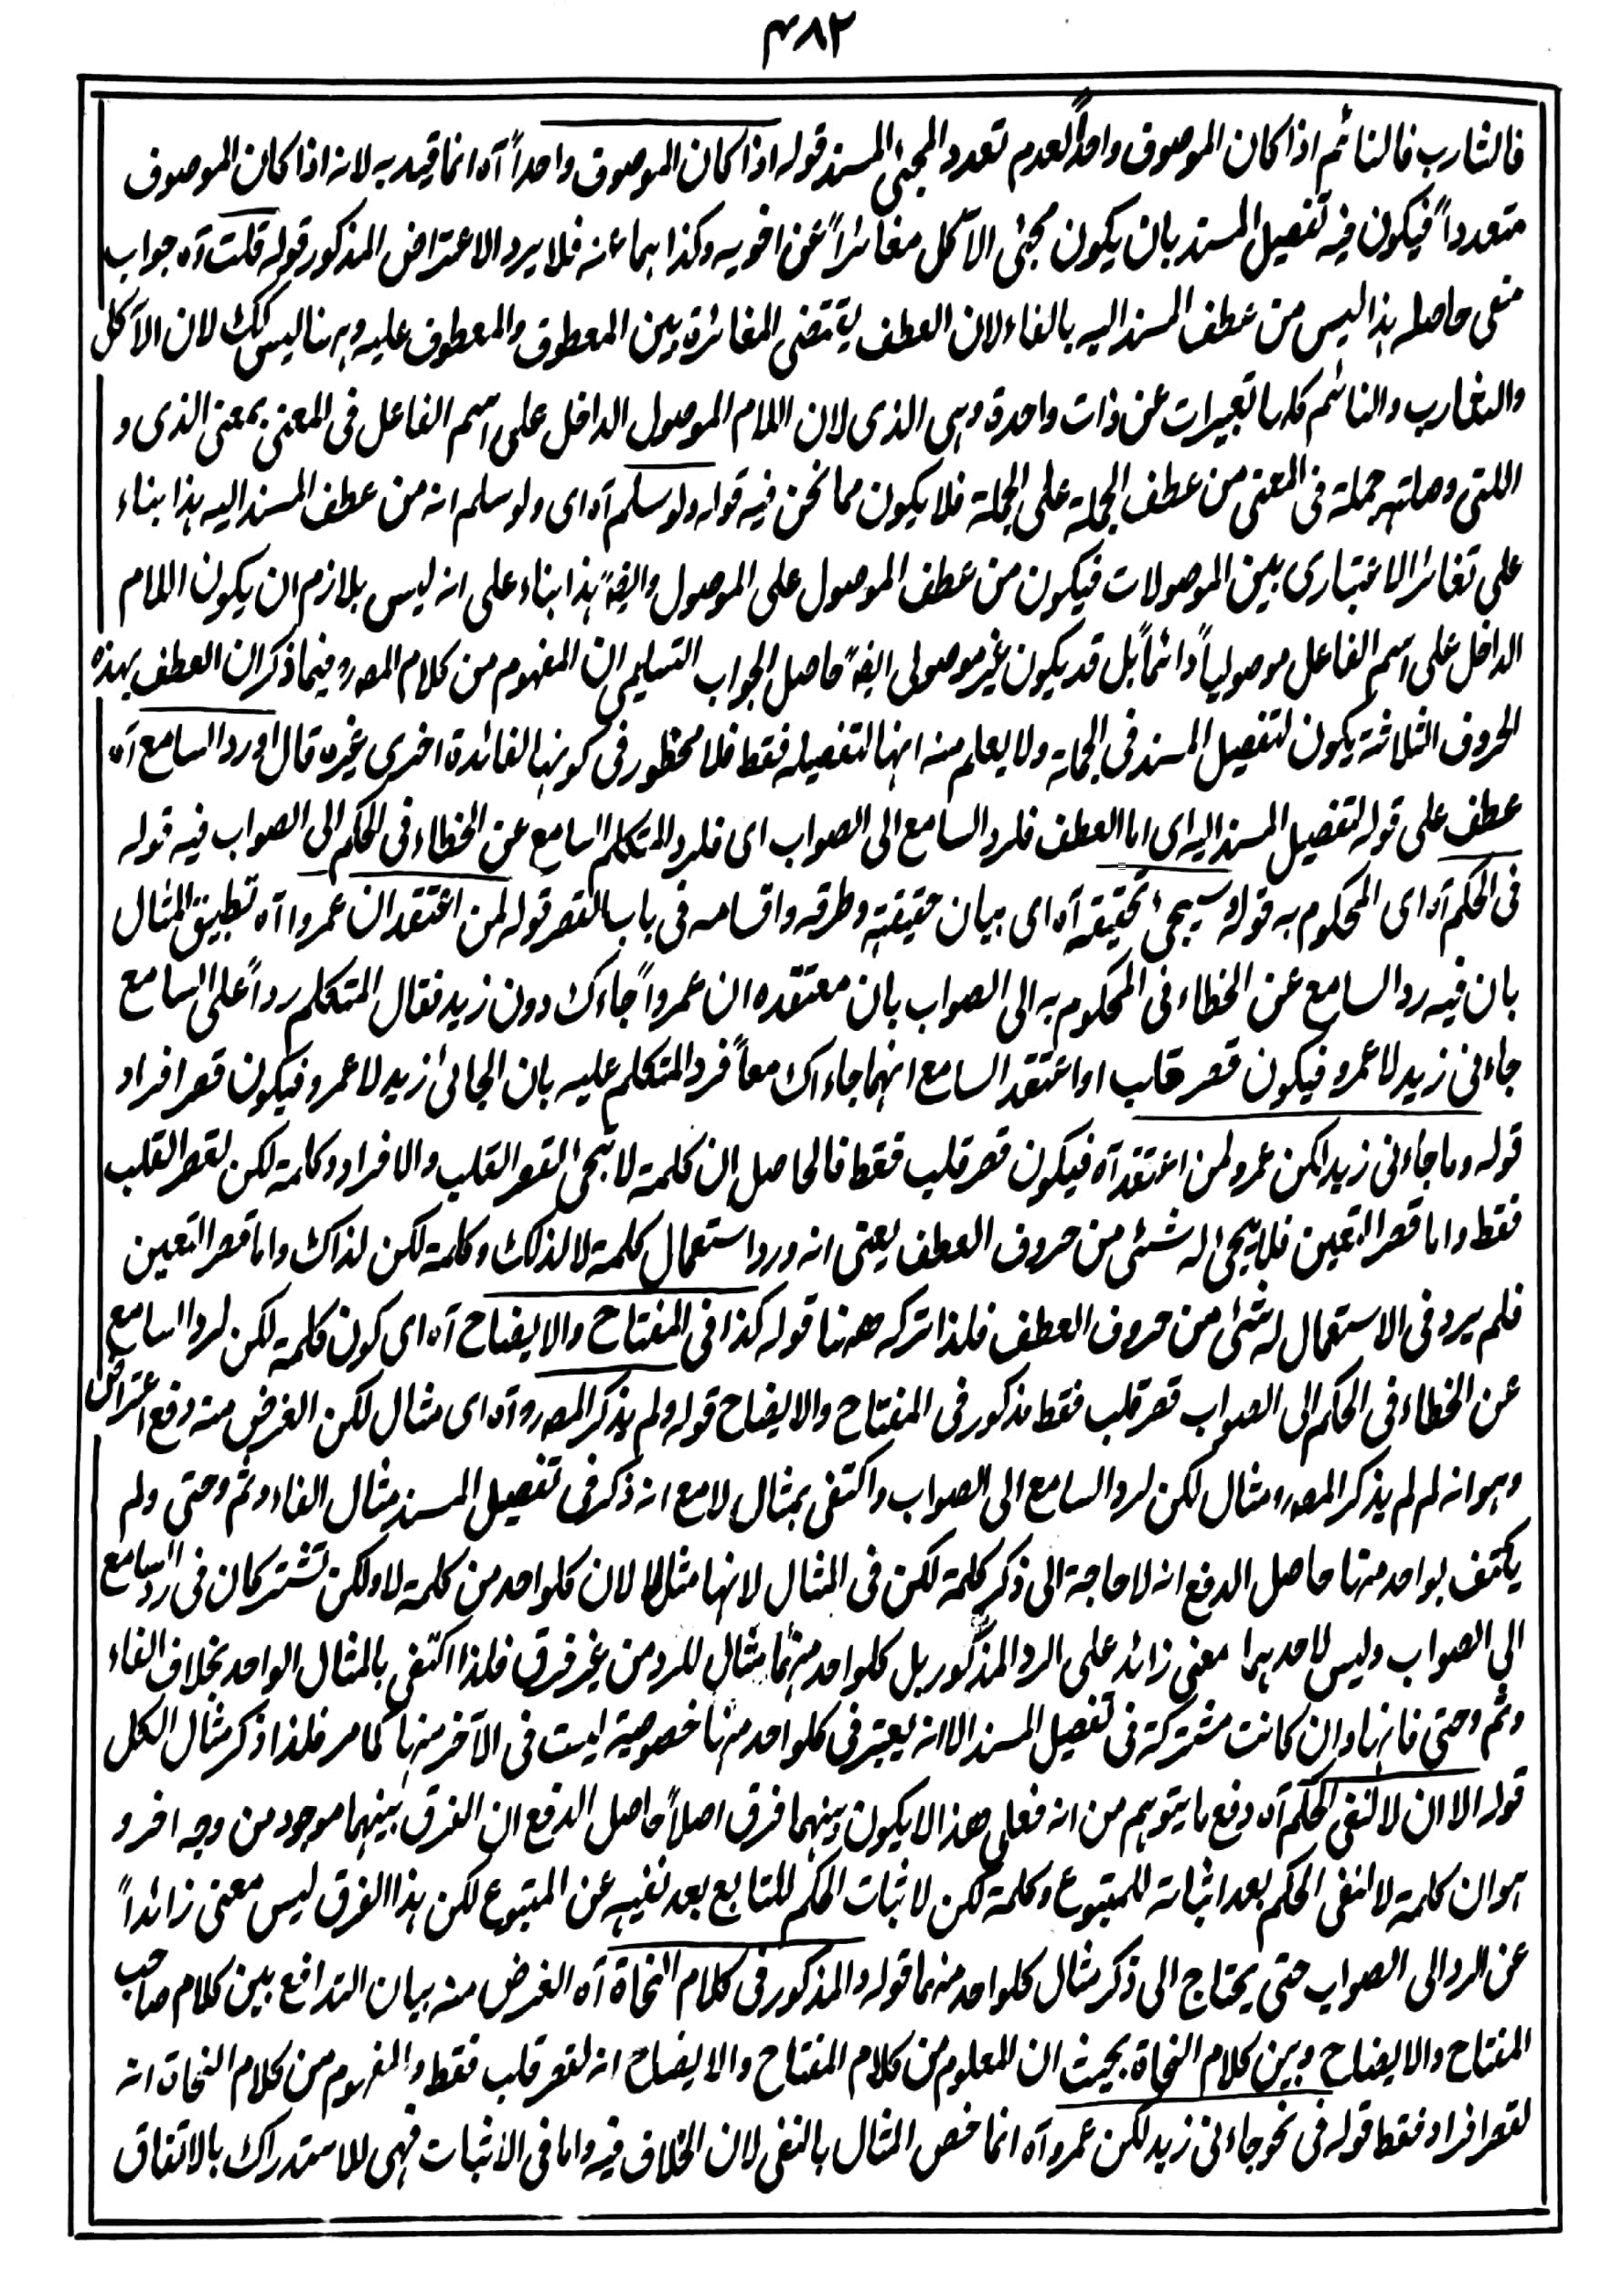 ۴۸۲
فالشارب فالنائم اذا كان الموصوف واحداً لعدم تعدد المجئ المسند قوله اذا كان الموصوف واحداً آه انما قيد به لانه اذا كان الموصوف
متعدداً فيكون فيه تفصيل المسند بان يكون مجئ الآكل مغائراً عن اخويه وكذا هما عنه فلا يرد الاعتراض المذكور قوله قلت آه جواب
منعى حاصله هذا ليس من عطف المسند اليه بالفاء لان العطف يقتضى المغائرة بين المعطوف والمعطوف عليه وههنا ليس كك لان الآكل
والشارب والنائم كلها تعبيرات عن ذات واحدة وهى الذى لان اللام الموصول الداخل على اسم الفاعل فى المعنى بمعنى الذى و
اللتى وصلته جملة فى المعنى من عطف الجملة على الجملة فلا يكون مما نحن فيه قوله ولو سلم آه اى ولو سلم انه من عطف المسند اليه هذا بناء
على تغائر الاعتبارى بين الموصولات فيكون من عطف الموصول على الموصول وايضاً هذا بناء على انه ليس بلازم ان يكون اللام
الداخل على اسم الفاعل موصولياً دائماً بل قد يكون غير موصولى ايضاً حاصل الجواب التسليمى ان المفهوم من كلام المصرو فيما ذكر ان العطف بهذه
الحروف الثلاثة يكون لتفصيل المسند فى الجملة ولا يعلم منه انها لتفصيله فقط فلا محظور فى كونها لفائدة اخرى غيره قال او رد السامع آه
عطف على قوله لتفصيل المسند اليه اى اما العطف فلرد السامع الى الصواب اى فلرد المتكلم السامع عن الخطاء فى الحكم الى الصواب فيه قوله
فى الحكم آه اى المحكوم به قوله وسيجئ تحقيقه آه اى بيان حقيقته وطرقه واقسامه فى باب القصر قوله لمن اعتقد ان عمروا آه تطبيق المثال
بان فيه رد السامع عن الخطاء فى المحكوم به الى الصواب بان معتقده ان عمرواً جاءك دون زيد فقال المتكلم رداً على السامع
جاءنى زيد لا عمرو فيكون قصر قلب او اعتقد السامع انهما جاءاك معاً فرد المتكلم عليه بان الجائى زيد لا عمرو فيكون قصر افراد
قوله وما جاءنى زيد لكن عمرو لمن اعتقد آه فيكون قصر قلب فقط فالحاصل ان كلمة لا تجئ لقصر القلب والافراد وكلمة لكن لقصر القلب
فقط واما قصر التعين فلا يجئ له شئى من حروف العطف يعنى انه ورد استعمال كلمة لا لذلك وكلمة لكن لذاك واما قصر التعين
فلم يرد فى الاستعمال له شئى من حروف العطف فلذا تركه ههنا قوله كذا فى المفتاح والايضاح آه اى كون كلمة لكن لرد السامع
عن الخطاء فى الحكم الى الصواب قصر قلب فقط مذكور فى المفتاح والايضاح قوله ولم يذكر المصرو آه اى مثال لكن الغرض منه دفع اعتراض
وهو انه لم لم يذكر المصرو مثال لكن لرد السامع الى الصواب واكتفى بمثال لا مع انه ذكر فى تفصيل المسند مثال الفاء وثم وحتى ولم
يكتف بواحد منها حاصل الدفع انه لا حاجة الى ذكر كلمة لكن فى المثال لانها مثل لا لان كلواحد من كلمة لا ولكن تشتركان فى رد السامع
الى الصواب وليس لاحدهما معنى زائد على الرد المذكور بل كلواحد منهما مثال للرد من غير فرق فلذا اكتفى بالمثال الواحد بخلاف الفاء
وثم وحتى فانها وان كانت مشتركة فى تفصيل المسند الا انه يعتبر فى كلواحد منها خصوصية ليست فى الآخر منها كما مر فلذا ذكر مثال الكل
قوله الا ان لا لنفى الحكم آه دفع ما يتوهم من انه فعلى هذا لا يكون بينهما فرق اصلاً حاصل الدفع ان الفرق بينهما موجود من وجه اخر و
هو ان كلمة لا لنفى الحكم بعد اثباته للمتبوع وكلمة لكن لاثبات الحكم للتابع بعد نفيه عن المتبوع لكن هذا الفرق ليس معنى زائداً
عن الرد الى الصواب حتى يحتاج الى ذكر مثال كلواحد منهما قوله والمذكور فى كلام النحاة آه الغرض منه بيان التدافع بين كلام صاحب
المفتاح والايضاح وبين كلام النحاة بحيث ان المعلوم من كلام المفتاح والايضاح انه لقصر قلب فقط والمفهوم من كلام النحاة انه
لقصر افراد فقط قوله فى نحو جاءنى زيد لكن عمرو آه انما خص المثال بالنفى لان الخلاف فيه واما فى الاثبات فهى للاستدراك بالاتفاق